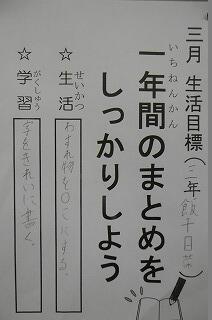 三月 生活目標(三年 飯干日菜)
いちねんかん
一年間のまとめを
しっかりしよう
せいかつ
☆生活
わすれ物を0こにする。
がくしゅう
☆学習
字をきれいに書く。